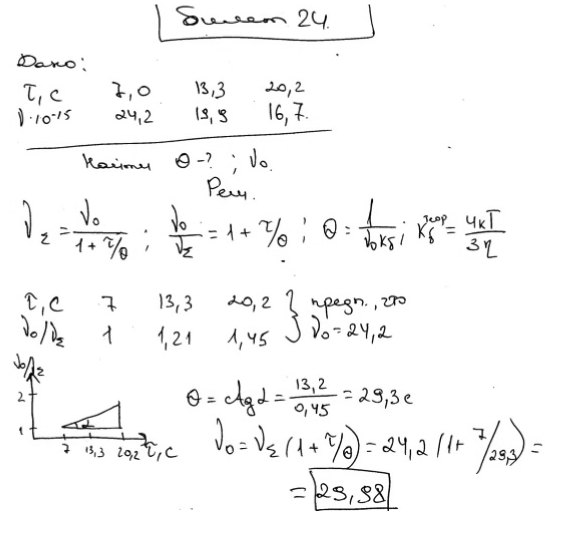 Билет 24.
Дано:
τ, с 7,0 13,3 20,2
ν·10⁻¹⁵ 24,2 19,9 16,7
Найти θ-? ; ν₀.
Реш.
ν_Σ = ν₀/(1 + τ/θ) ; ν₀/ν_Σ = 1 + τ/θ ; θ = 1/(ν₀ K_б) ; K_б^теор = 4кТ/3η
τ, с 7 13,3 20,2 } предп., что
ν₀/ν_Σ 1 1,21 1,45 } ν₀ = 24,2
ν₀/ν_Σ
2
1
α
7 13,3 20,2 τ, с
θ = ctg α = 13,2/0,45 = 29,3 с
ν₀ = ν_Σ (1 + τ/θ) = 24,2 (1 + 7/29,3) =
= 29,98